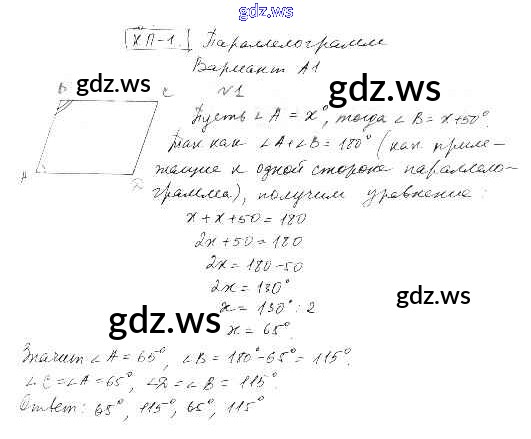 gdz.ws
КП-1. Параллелограмм
Вариант А1
gdz.ws
gdz.ws
B C
№1
Пусть ∠A = x°, тогда ∠B = x+50°.
Так как ∠A+∠B = 180° (как приле-
жащие к одной стороне параллело-
грамма), получим уравнение:
A D
x + x + 50 = 180
2x + 50 = 180
2x = 180 - 50
2x = 130°
x = 130° : 2
gdz.ws
gdz.ws
x = 65°.
Значит ∠A = 65°, ∠B = 180° - 65° = 115°.
∠C = ∠A = 65°, ∠D = ∠B = 115°.
Ответ: 65°, 115°, 65°, 115°
gdz.ws